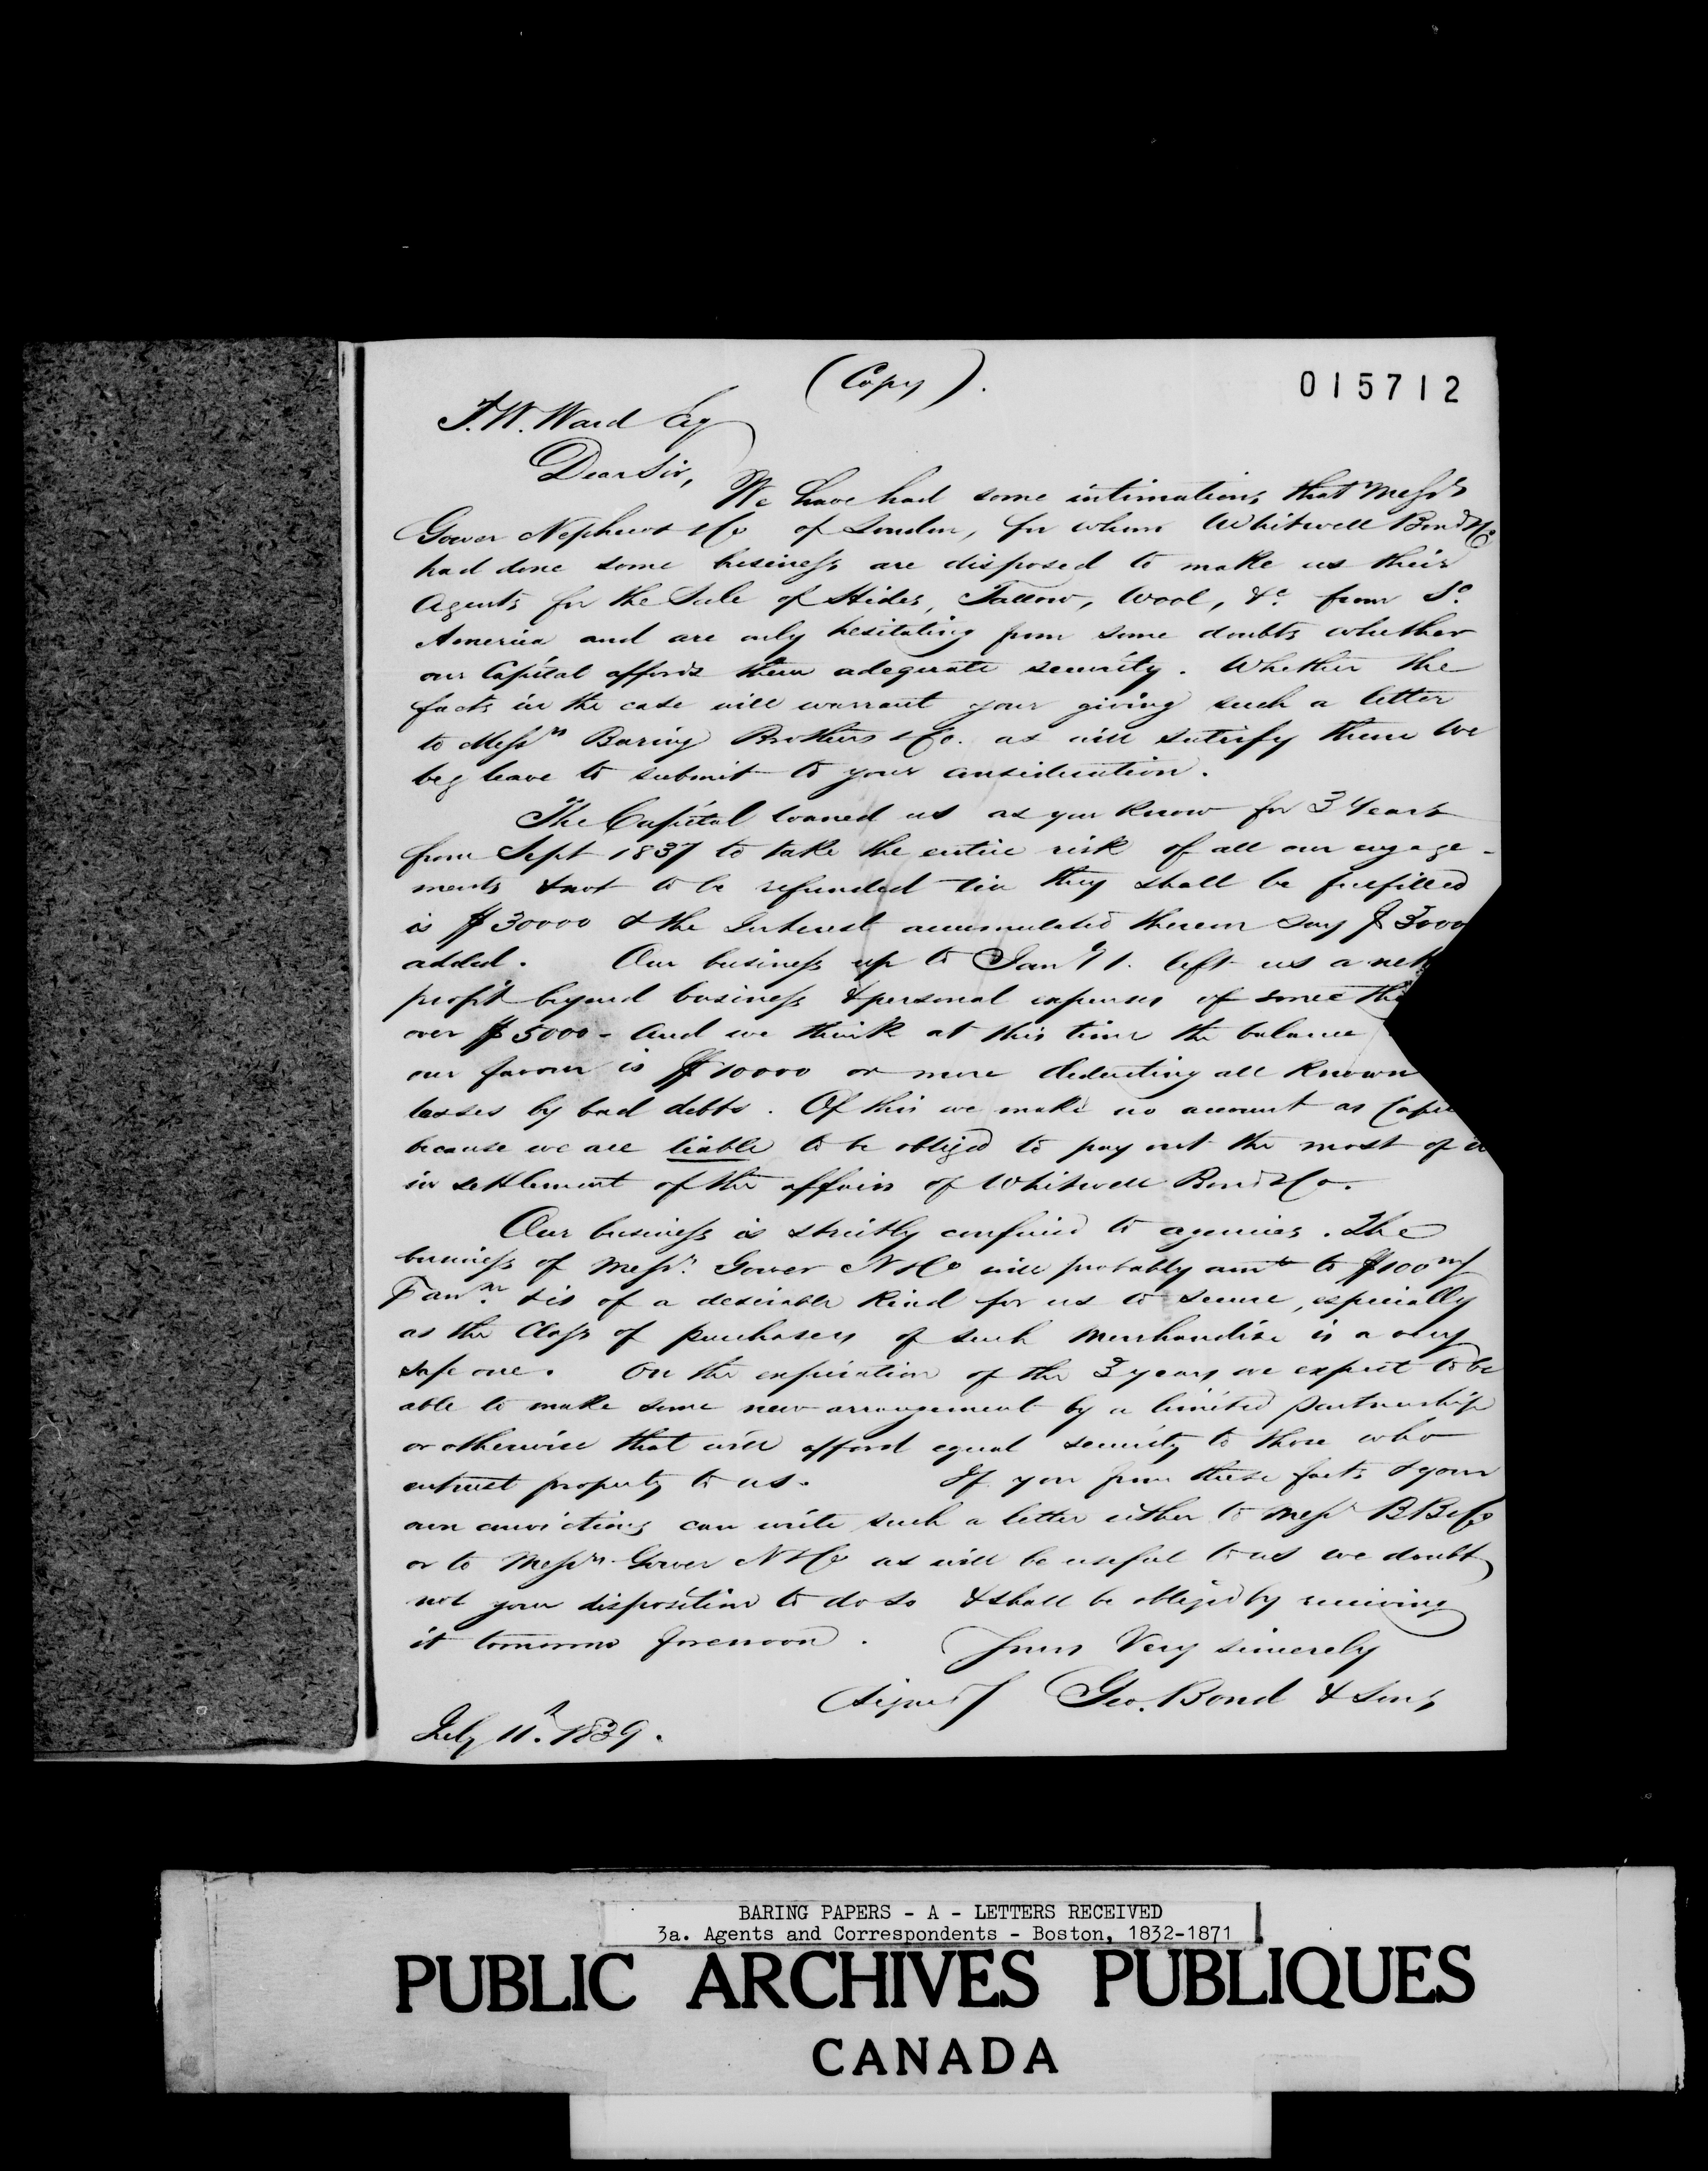 (Copy).
015712
T. W. Ward Esq
Dear Sir,
We have had some intimations that Messrs
Gower Nephews & Co of London, for whom Whitwell Bond & Co
had done some business are disposed to make us their
Agents for the Sale of Hides, Tallow, Wool, &c. from So.
America and are only hesitating from some doubts whether
our Capital affords them adequate security. Whether the
facts in the case will warrant your giving such a letter
to Messrs Baring Brothers & Co. as will satisfy them We
beg leave to submit to your consideration.
The Capital loaned us as you know for 3 Years
from Sept 1837 to take the entire risk of all our engage-
ments & not to be refunded till they shall be fulfilled
is $30000 & the Interest accumulated thereon say $3000
added. Our business up to Jany 1. left us a nett
profit beyond business & personal expenses of
over $5000 - And we think at this time the balance
our favour is $10000 or more deducting all Known
losses by bad debts. Of this we make no account as
because we are liable to be obliged to pay out the most of it
in settlement of the affairs of Whitwell Bond & Co.
Our business is strictly confined to agencies. The
business of Messrs. Gower N & Co will probably amt to $100m/
& is of a desirable Kind for us to secure, especially
as the Class of purchasers of such Merchandise is a very
safe one. On the expiration of the 3 years we expect to be
able to make some new arrangement by a limited partnership
or otherwise that will afford equal security to those who
entrust property to us. If you from these facts & your
own convictions can write such a letter either to Messrs B B & Co
or to Messrs Gower N & Co as will be useful to us we doubt
not your disposition to do so & shall be obliged by receiving
it tomorrow forenoon.
Yours Very sincerely
(signed) Geo. Bond & Sons
July 11th. 1839.
BARING PAPERS - A - LETTERS RECEIVED
3a. Agents and Correspondents - Boston, 1832-1871
PUBLIC ARCHIVES PUBLIQUES
CANADA